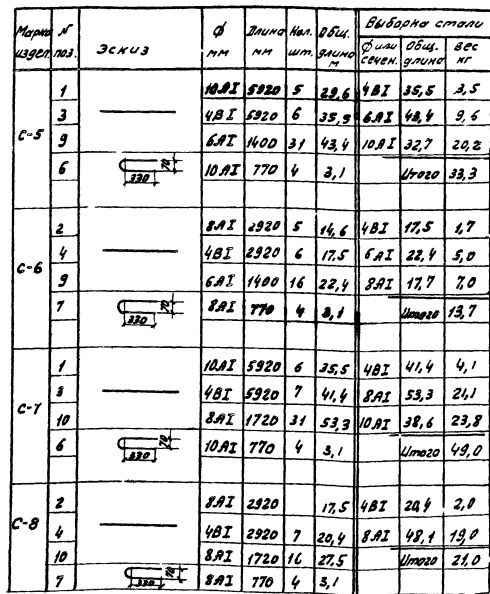 Марка издел. N поз. Эскиз Ø мм Длина мм Кол. шт. Общ. длина м Выборка стали
Ø или сечен. Общ. длина Вес кг
С-5
1 10АI 5920 5 29,6 4ВI 35,5 3,5
3 4ВI 5920 6 35,9 6АI 43,4 9,6
9 6АI 1400 31 43,4 10АI 32,7 20,2
6 330 70 10АI 770 4 3,1 Итого 33,3
С-6
2 8АI 2920 5 14,6 4ВI 17,5 1,7
4 4ВI 2920 6 17,5 6АI 22,4 5,0
9 6АI 1400 16 22,4 8АI 17,7 7,0
7 330 70 8АI 770 4 3,1 Итого 13,7
С-7
1 10АI 5920 6 35,5 4ВI 41,4 4,1
3 4ВI 5920 7 41,4 8АI 53,3 21,1
10 8АI 1720 31 53,3 10АI 38,6 23,8
6 330 70 10АI 770 4 3,1 Итого 49,0
С-8
2 8АI 2920 17,5 4ВI 20,4 2,0
4 4ВI 2920 7 20,4 8АI 48,1 19,0
10 8АI 1720 16 27,5 Итого 21,0
7 330 70 8АI 770 4 3,1